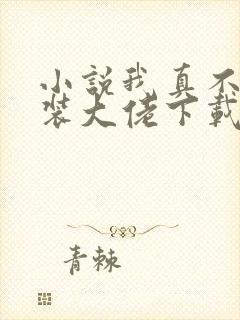 小說我真不
裝大佬下載
青棘